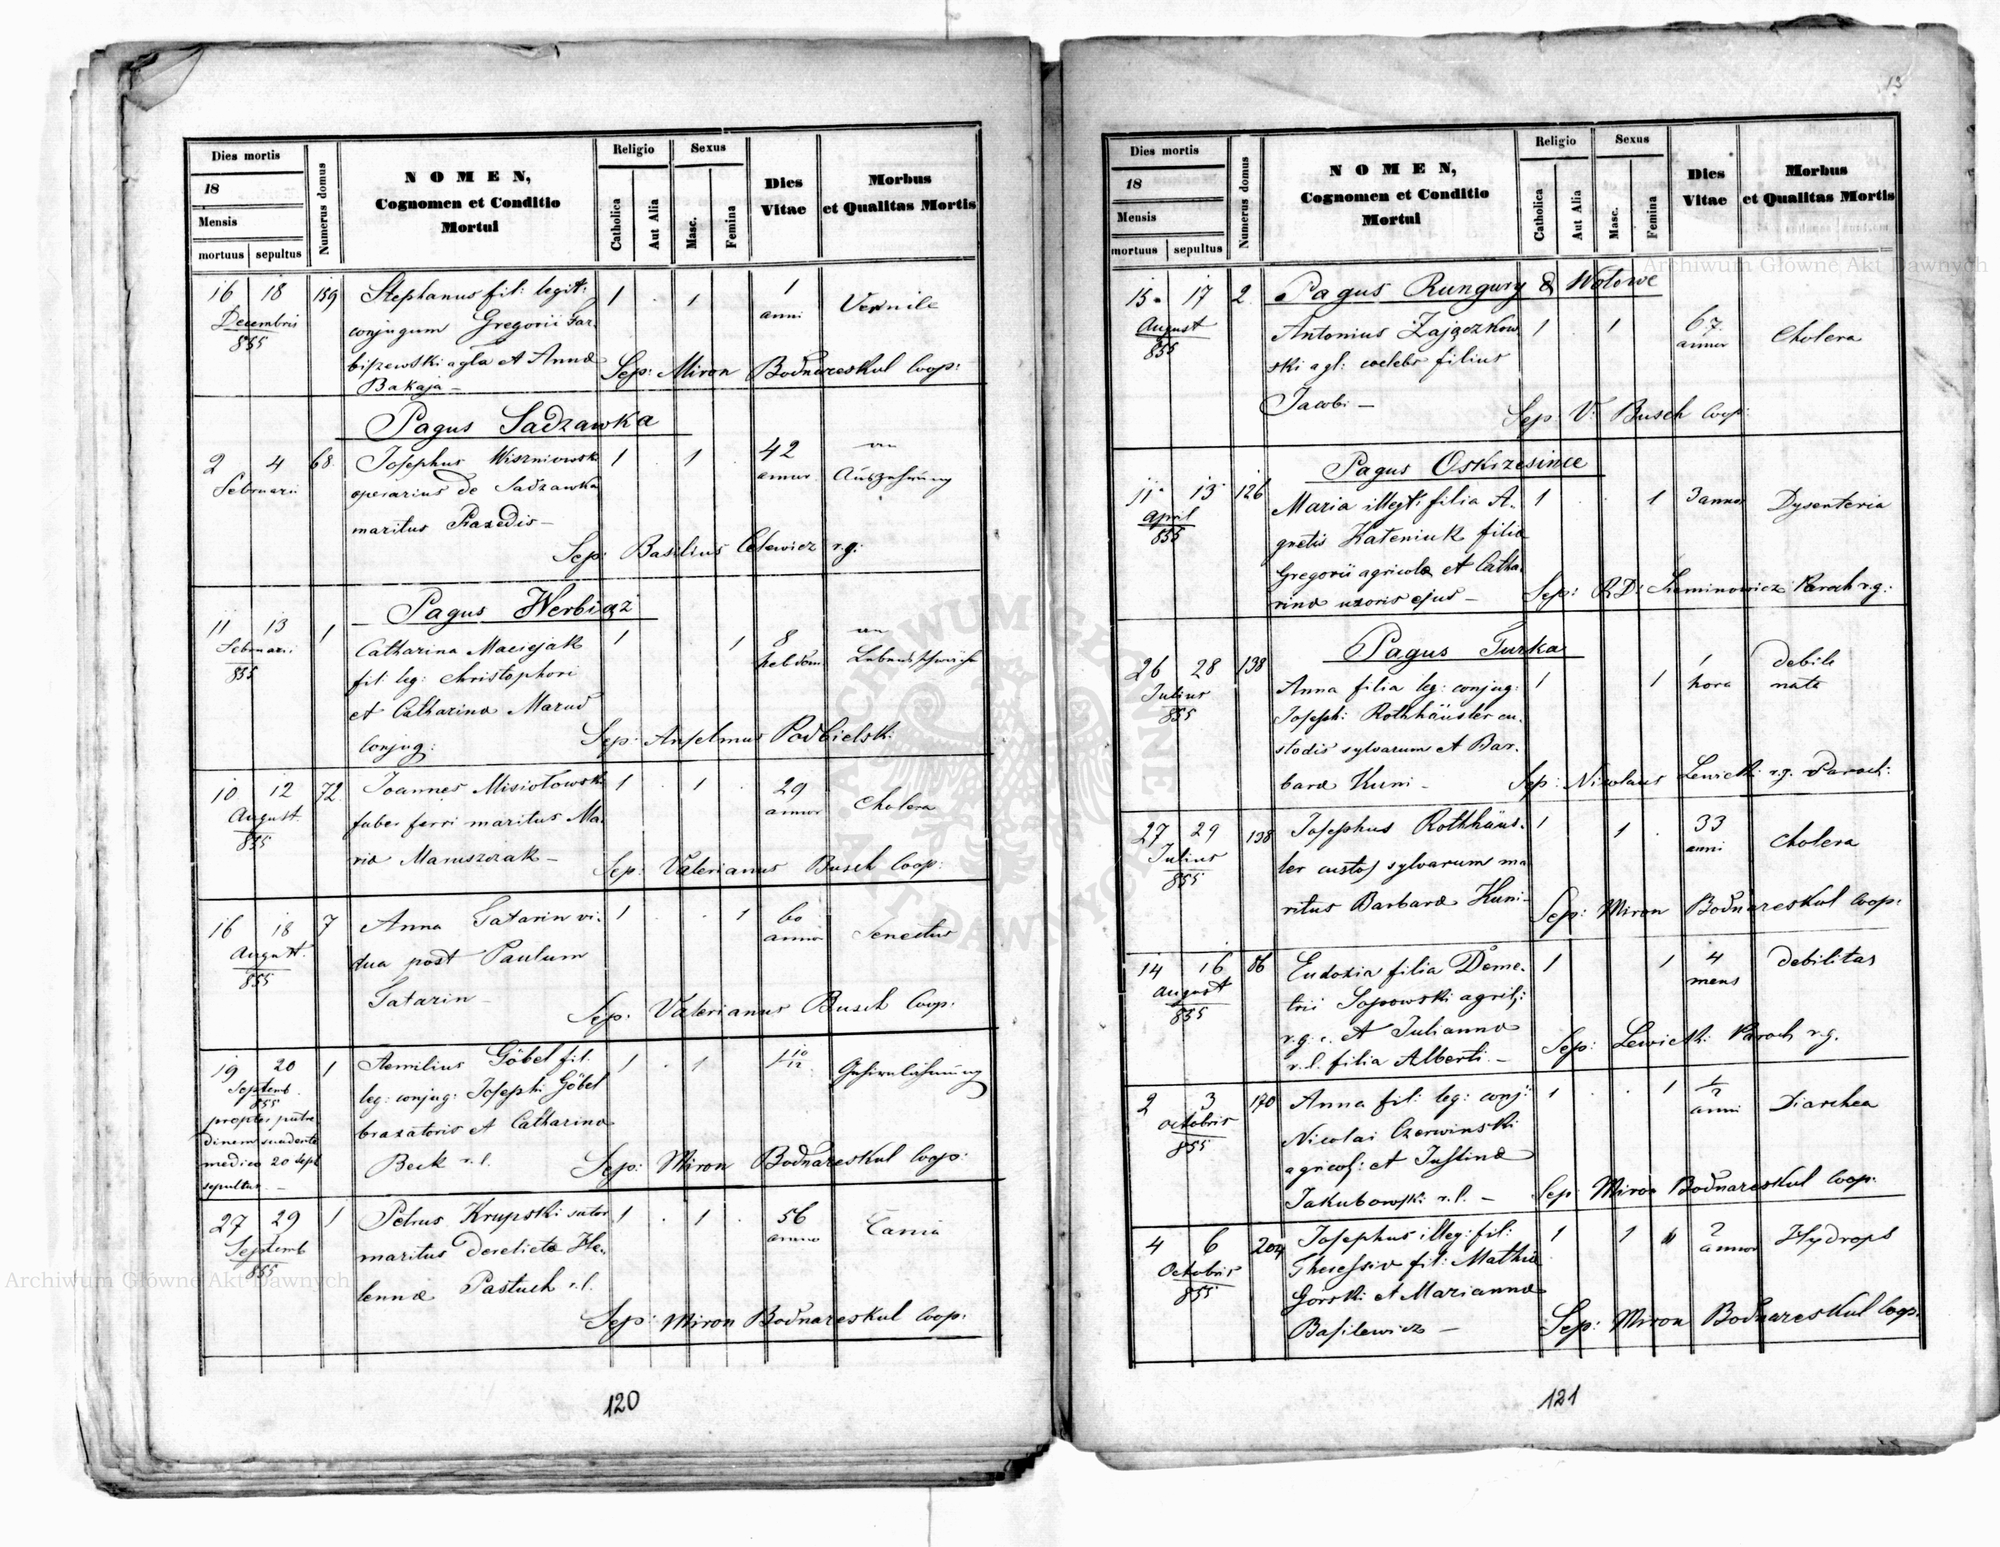 13
Dies mortis
18
Mensis
mortuus sepultus
Numerus domus
NOMEN,
Cognomen et Conditio
Mortui
Religio
Catholica
Aut Alia
Sexus
Masc.
Femina
Dies
Vitae
Morbus
et Qualitas Mortis
16 18 159 Stephanus fil: legit: 1 . 1 1 Vermile
Decembris conjugum Gregorii Far- anni
855 biszewski agla et Annæ Sep: Miron Bodnareskul Coop:
Bakaja —
Pagus Sadzawka
2 4 68. Josephus Wiszniowsk 1 . 1 . 42 an
Februarii operarius de Sadzawka annor. Auszehrung
maritus Praxedis —
Sep: Basilius Celewicz r.g:
Pagus Werbiąż
11 13 1 Catharina Maciejak 1 1 8 an
Februarii fil: leg: Christophori hebdom. Lebensschwäche
855 et Catharinæ Marud
Conjug: Sep: Anselmus Podbielski
10 12 72. Joannes Misiołowski 1 . 1 29 Cholera
August. faber ferri maritus Ma- annor
855 riæ Maruszczak — Sep: Valerianus Busch Coop:
16 18 7 Anna Tatarin vi- 1 . . 1 60 Senectus
August. dua post Paulum annor
855 Tatarin — Sep: Valerianus Busch Coop:
19 20 1 Aemilius Göbel fil. 1 . 1 10/12 Gehirnlähmung
Septemb. leg: conjug: Josephi Göbel
855 braxatoris et Catharinæ
propter putre
dinem suadente
medico 20 Sept
sepultus. —
Beck r.l. Sep: Miron Bodnareskul Coop:
27 29 1 Petrus Krupski sutor 1 . 1 . 56 Tania
Septemb maritus derelictæ He- annor
855 lennæ Pastuch r.l.
Sep: Miron Bodnareskul Coop:
120
Dies mortis
18
Mensis
mortuus sepultus
Numerus domus
NOMEN,
Cognomen et Conditio
Mortui
Religio
Catholica
Aut Alia
Sexus
Masc.
Femina
Dies
Vitae
Morbus
et Qualitas Mortis
Pagus Rungury & Wołowe
15 17 2. Antonius Zajączkow 1 . 1 67. Cholera
August ski agl: coelebs filius annor
855 Jacobi — Sep: V. Busch Coop:
Pagus Oskrzesince
11 13 126 Maria illegit: filia A- 1 . . 1 3 annor Dysenteria
April gnetis Kateniuk filiæ
855 Gregorii agricolæ et Catha-
rinæ uxoris ejus — Sep: R.D: Sieminowicz Paroch r.g.:
Pagus Turka
26 28 138 Anna filia leg: conjug: 1 1 1 debile
Julius Josephi Rothhäusler cu- hora nata
855 stodis sylvarum et Bar-
baræ Kuni — Sep: Nicolaus Lewicki r.g. Paroch:
27 29 138 Josephus Rothhäus- 1 1 . 33 Cholera
Julius ler custos sylvarum ma anni
855 ritus Barbaræ Kuni — Sep: Miron Bodnareskul Coop:
14 16 86 Eudoxia filia Deme- 1 1 4 Debilitas
August trii Sopowski agril: mens
855 r.g.c. et Julianna
r.l. filia Alberti. — Sep: Lewicki Paroch r.g.
2 3 170 Anna fil: leg: conj: 1 . . 1 1/2 Diarrhea
Octobris Nicolai Czerwinski anni
855 agricol: et Justinæ
Jakubowski r.l. — Sep: Miron Bodnareskul Coop:
4 6 204 Josephus illeg: fil: 1 1 2 Hydrops
Octobris Theressiæ fil: Mathiæ annor
855 Gorski et Mariannæ
Basilewicz — Sep: Miron Bodnareskul Coop.
121
Archiwum Główne Akt Dawnych
Archiwum Główne Akt Dawnych
ARCHIWUM GŁÓWNE AKT DAWNYCH